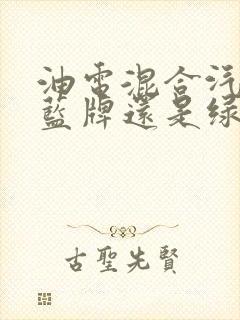 油電混合汽
藍牌還是綠
古聖先賢